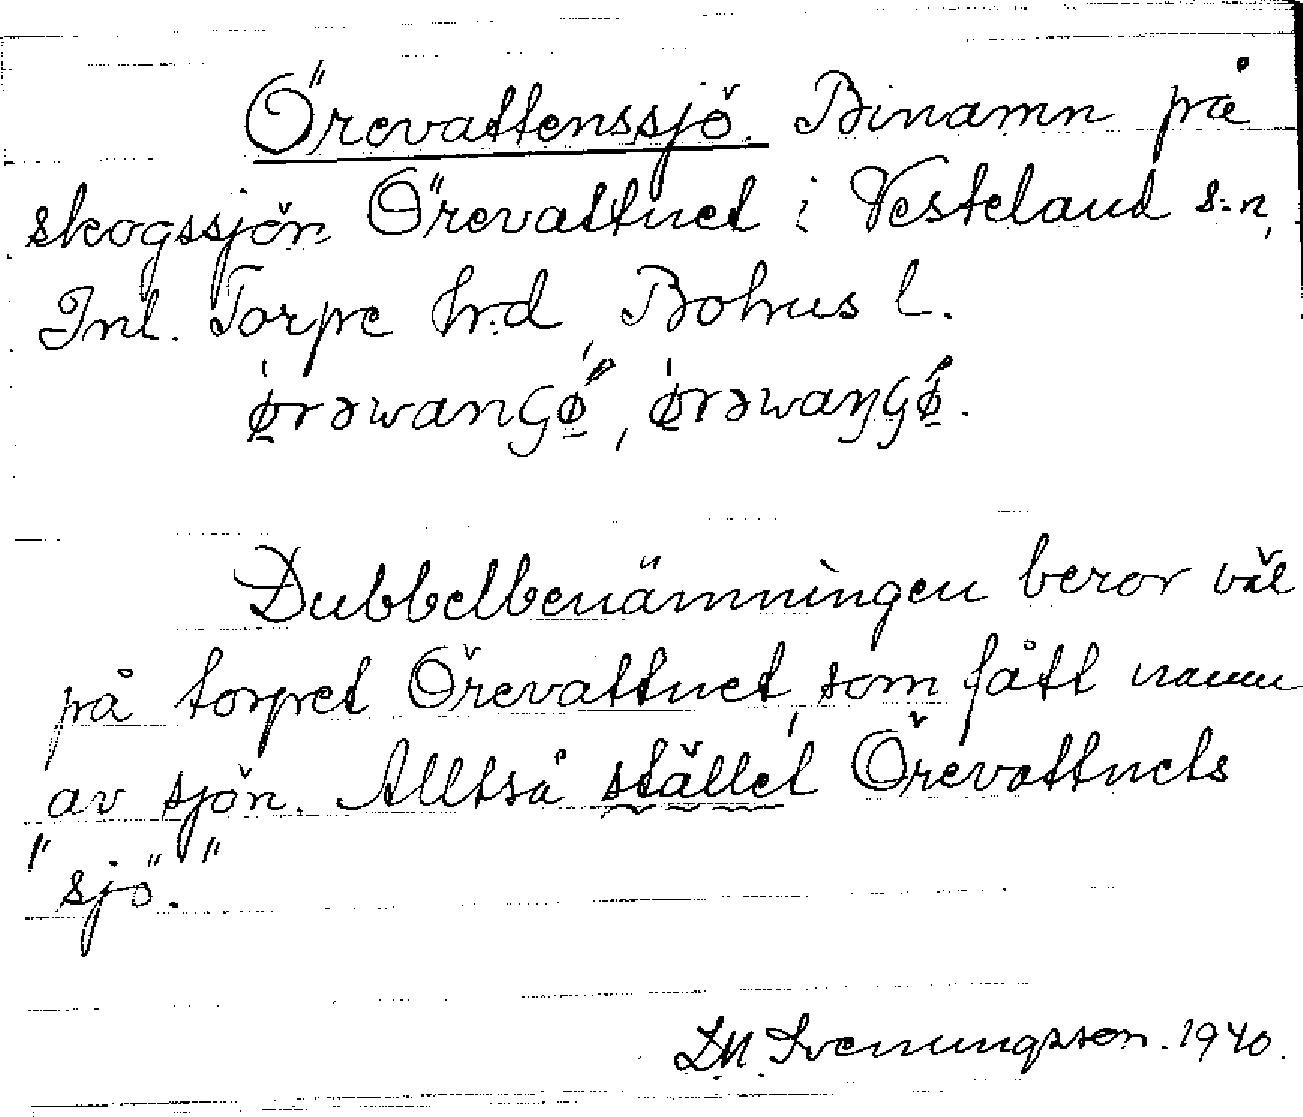 Örevattenssjö. Binamn på
skogssjön Örevattnet i Vesteland s:n,
Inl. Torpe hrd, Bohus l.
Dubbelbenämningen beror väl
på torpet Örevattnet, som fått namn
av sjön. Alltså stället Örevattnets
"sjö."
Svenungsson. 1940.